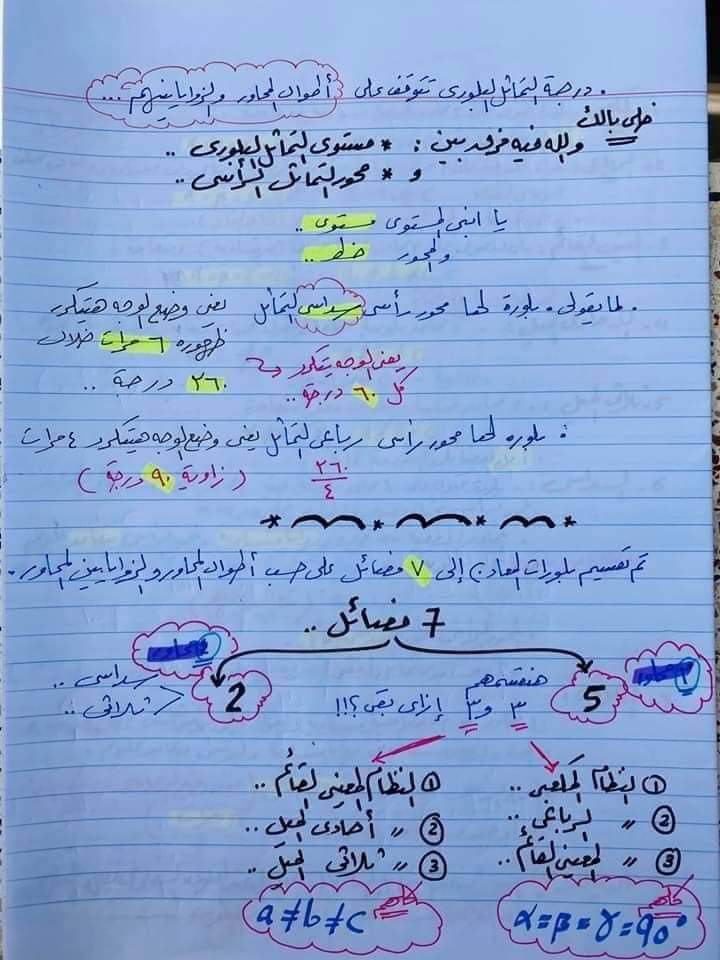 . درجة التماثل البلورى تتوقف على أطوال المحاور والزوايا بينهم ...
خلى بالك
والله فيه فرق بين : * مستوى التماثل البلورى ..
و * محور التماثل الرأسى ..
يا ابنى المستوى مستوى ..
والمحور خط ..
. لما يقولى بلورة لها محور رأسى سداسى التماثل يعنى وضع الوجه هيتكرر
ظهوره ٦ مرات خلال
٣٦٠ درجة ..
يعنى الوجه يتكرر
كل ٦٠ درجة ..
بلوره لها محور رأسى رباعى التماثل يعنى وضع الوجه هيتكرر ٤ مرات
٣٦٠
٤
( زاوية ٩٠ درجة )
تم تقسيم بلورات المعادن إلى ٧ فصائل على حسب أطوال المحاور والزوايا بين المحاور .
7 فصائل ..
٣ محاور
5
هنقسمهم
٣ و ٣ إزاى بقى ؟!!
محاور
2
سداسى ..
ثلاثى ..
① النظام المكعبى ..
② " الرباعى ..
③ " المعينى القائم ..
خاص
α = β = γ = 90°
① النظام المعينى القائم ..
② " أحادى الميل ..
③ " ثلاثى الميل ..
خاص
a ≠ b ≠ c